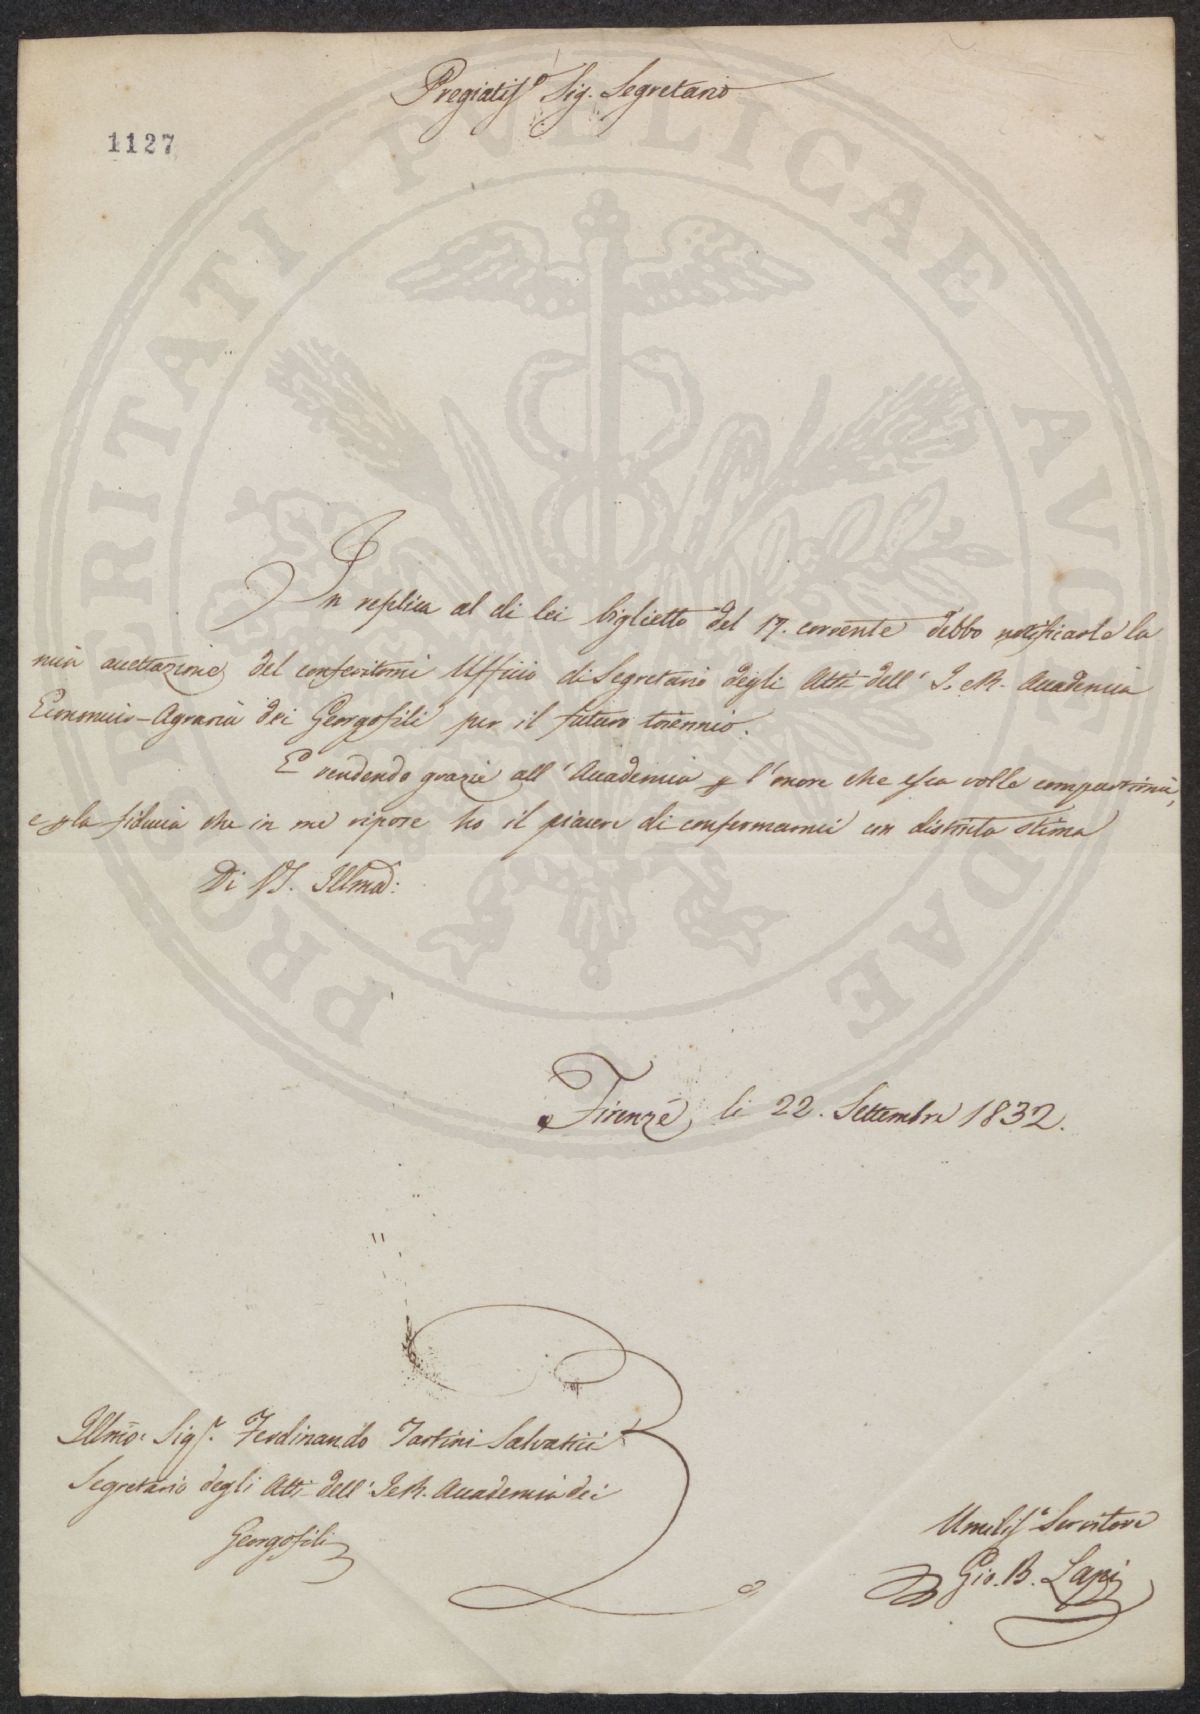 Pregiatis.o Sig. Segretario
1127
In replica al di lei biglietto del 17. corrente debbo notificarle la
mia accettazione del conferitomi Uffizio di Segretario degli Atti dell' I. e R. Accademia
Economico-Agraria dei Georgofili per il futuro triennio.
E rendendo grazie all' Accademia p l'onore che essa volle compartirmi,
e p la fiducia che in me ripose ho il piacere di confermarmi con distinta stima
Di VS. Illma:
Firenze li 22. Settembre 1832.
Illmo: Sigr. Ferdinando Tartini Salvatici
Segretario degli Atti dell' I e R. Accademia dei
Georgofili
Umilis.o Servitore
Gio. B. Lapi
PROSPERITATI PVBLICAE AVGENDAE